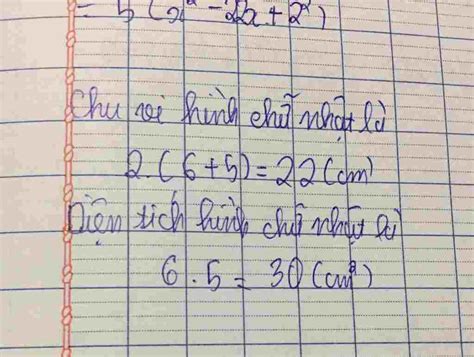 = 5 (x² - 2x + 2²)
Chu vi hình chữ nhật là
2.(6+5)=22(cm)
Diện tích hình chữ nhật là
6.5=30(cm²)